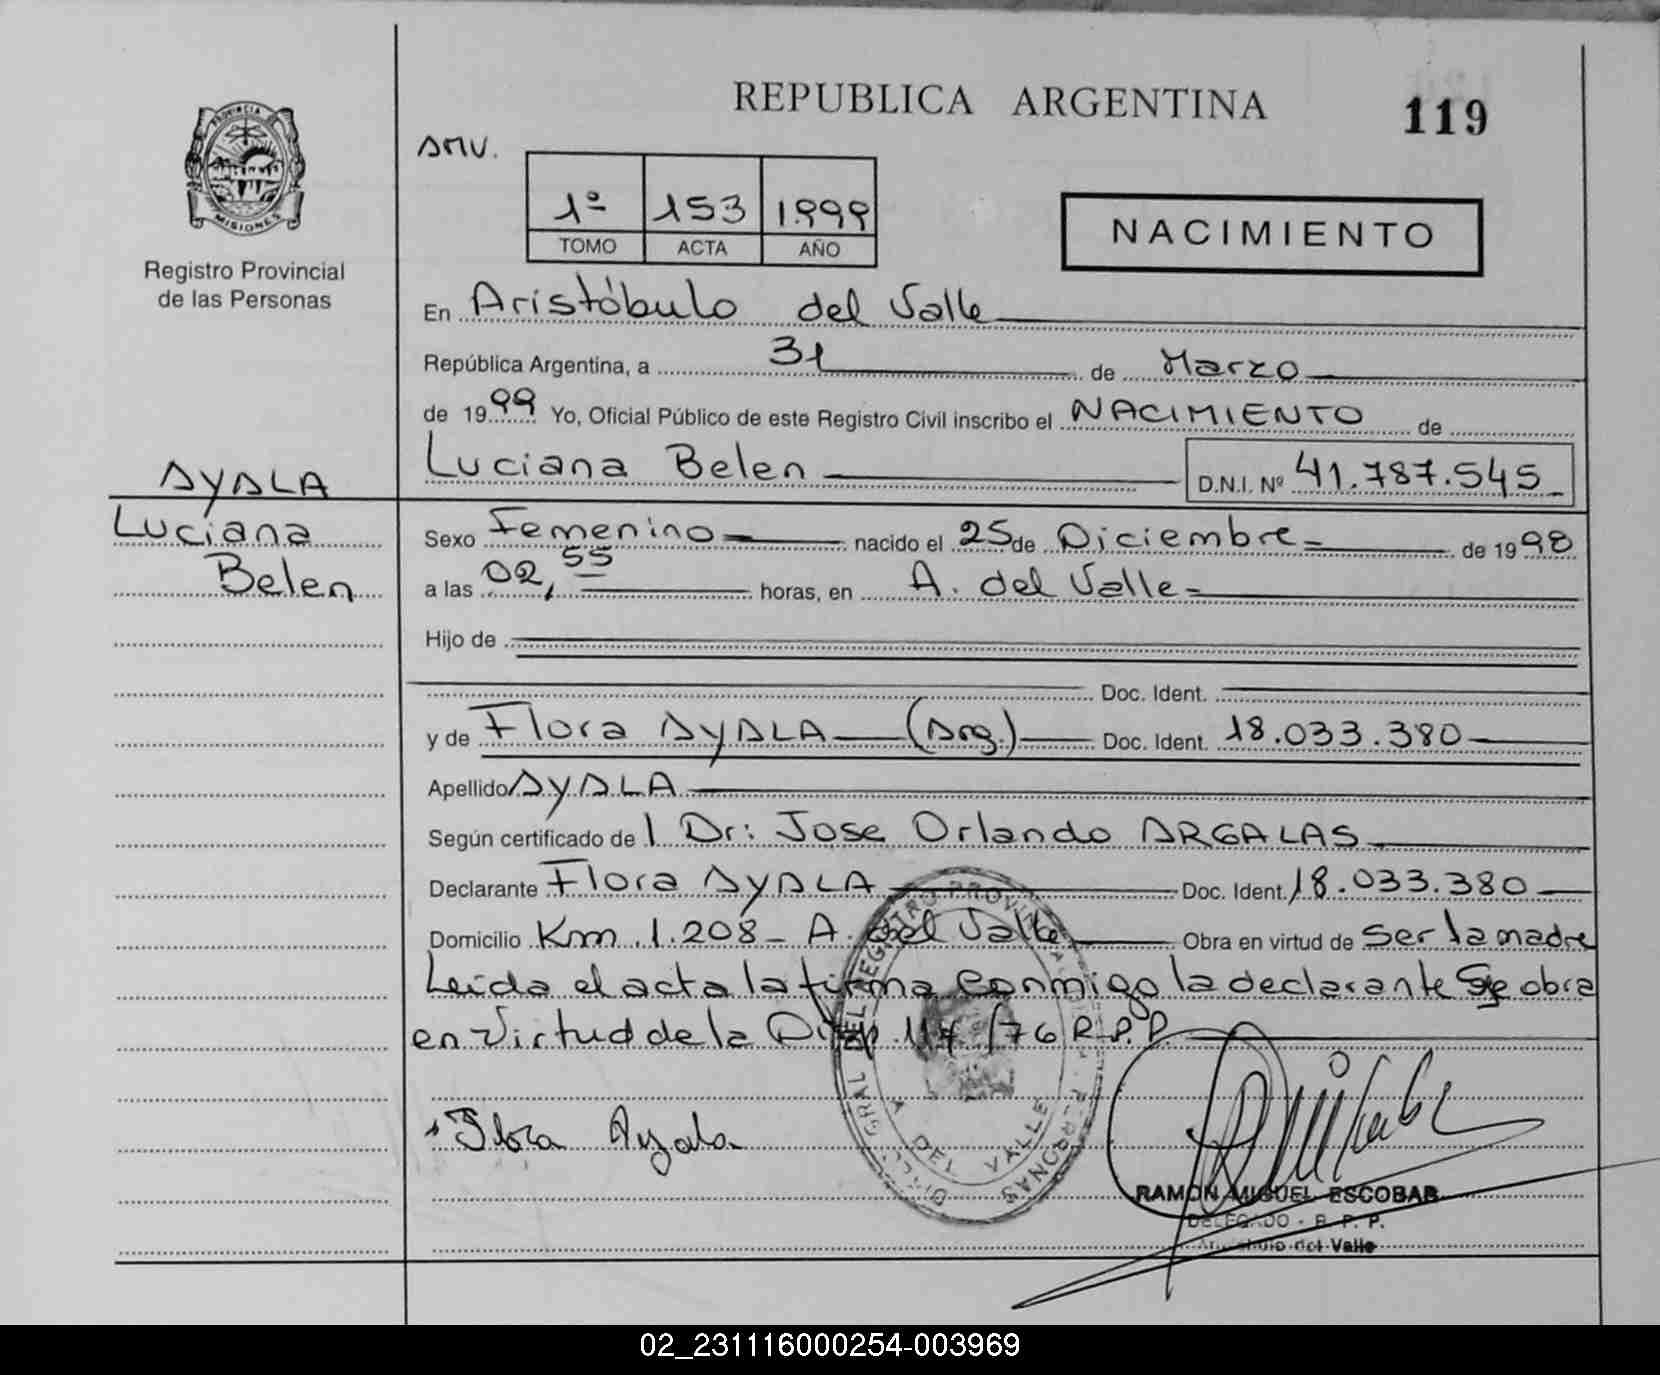 REPUBLICA ARGENTINA
119
PROVINCIA DE
MISIONES
Registro Provincial
de las Personas
AMV.
1º 153 1999
TOMO ACTA AÑO
NACIMIENTO
En Aristóbulo del Valle
República Argentina, a 31 de Marzo
de 1999 Yo, Oficial Público de este Registro Civil inscribo el NACIMIENTO de
Luciana Belen D.N.I. Nº 41.787.545
AYALA
Luciana
Belen
Sexo Femenino nacido el 25 de Diciembre de 1998
a las 02,55 horas, en A. del Valle
Hijo de
Doc. Ident.
y de Flora AYALA (Arg.) Doc. Ident. 18.033.380
Apellido AYALA
Según certificado de l Dr: Jose Orlando ARGALAS
Declarante Flora AYALA Doc. Ident. 18.033.380
Domicilio Km 1.208 - A. del Valle Obra en virtud de ser la madre
Leída el acta la firma conmigo la declarante Se obra
en Virtud de la Disp. 114/76 R.P.P.
Flora Ayala
DIREC. GRAL DEL REGISTRO PROVINCIAL PERSONAS
A DEL VALLE
RAMON MIGUEL ESCOBAR
DELEGADO - R. P. P.
Aristóbulo del Valle
02_231116000254-003969